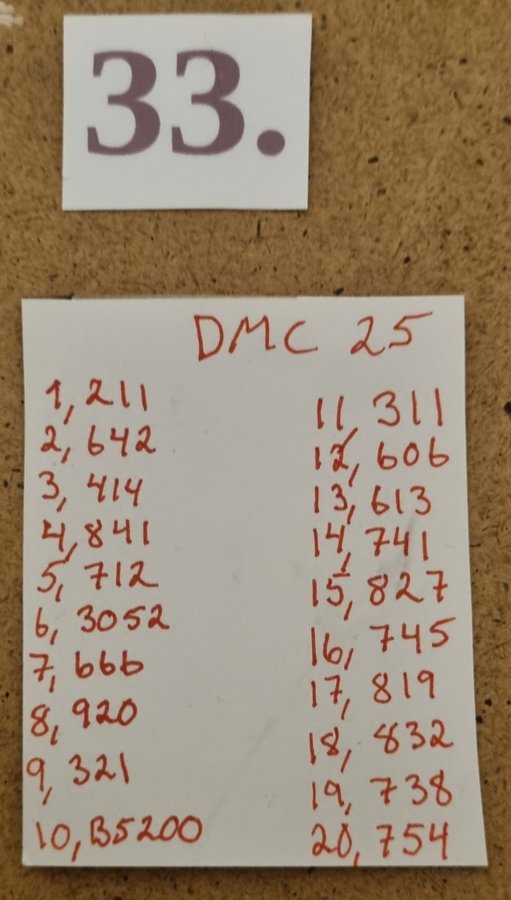 33.
DMC 25
1, 211
2, 642
3, 414
4, 841
5, 712
6, 3052
7, 666
8, 920
9, 321
10, B5200
11, 311
12, 606
13, 613
14, 741
15, 827
16, 745
17, 819
18, 832
19, 738
20, 754